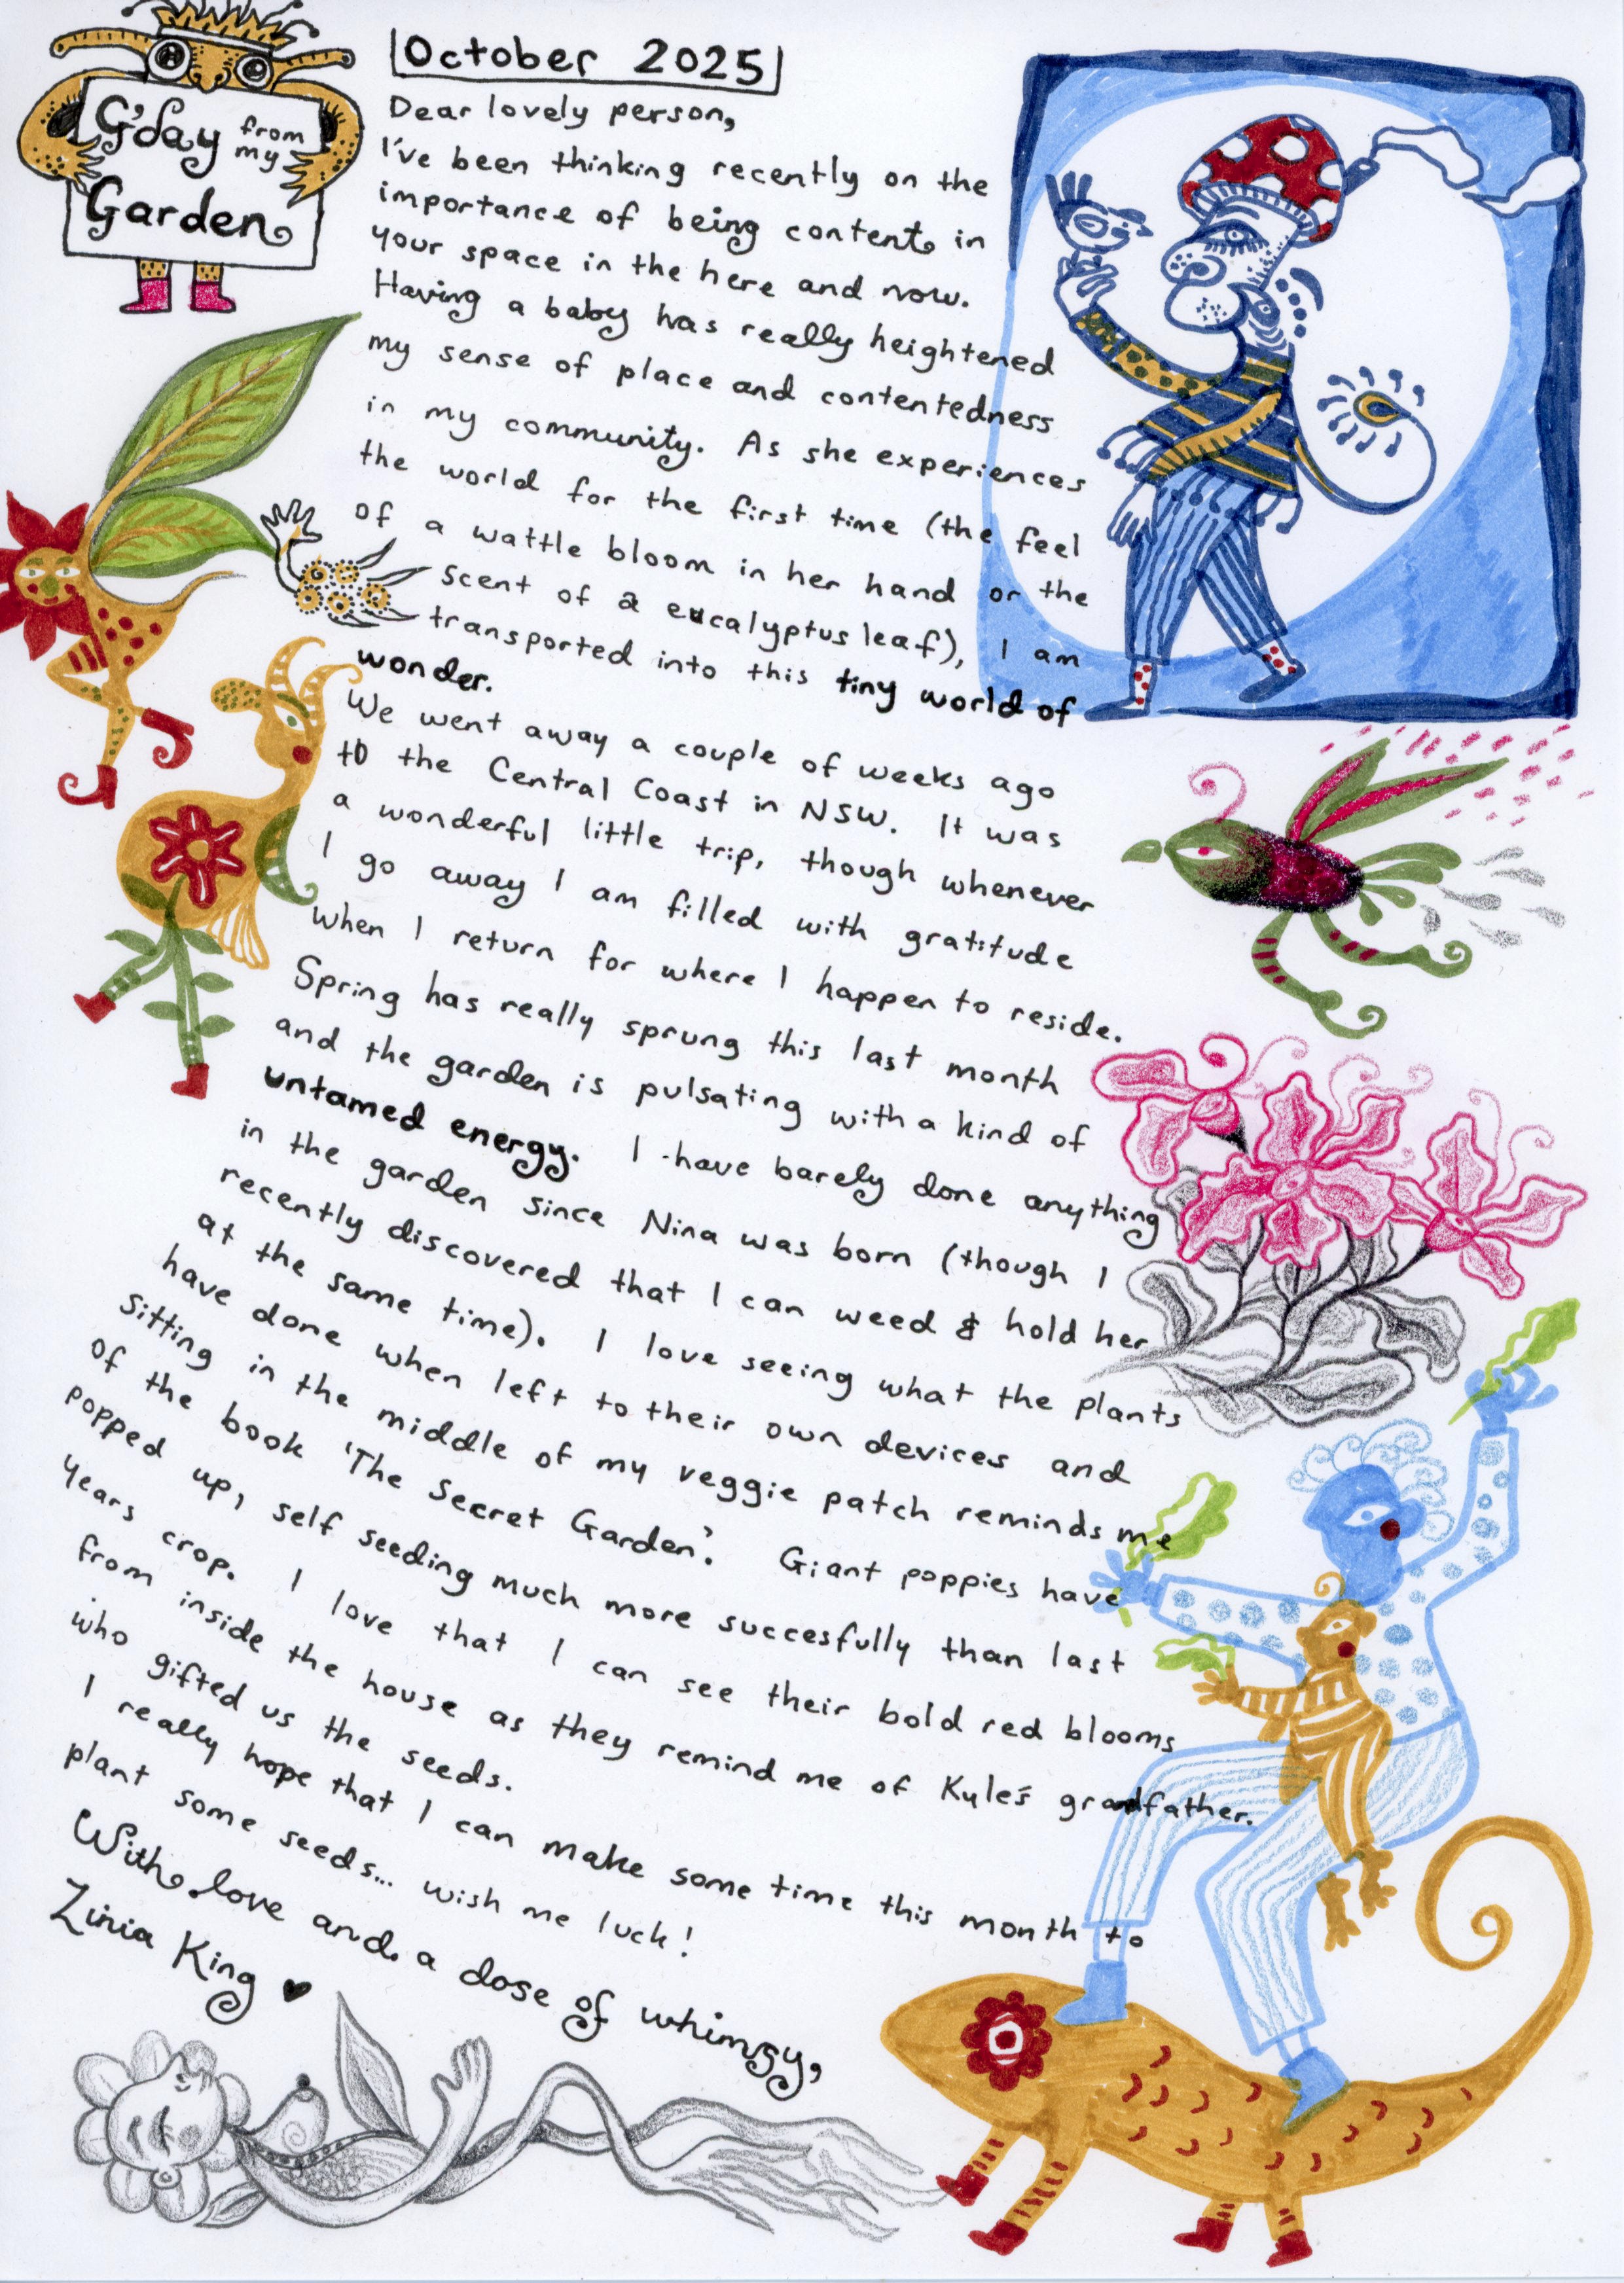 G'day from my
Garden
October 2025
Dear lovely person,
I've been thinking recently on the
importance of being content in
your space in the here and now.
Having a baby has really heightened
my sense of place and contentedness
in my community. As she experiences
the world for the first time (the feel
of a wattle bloom in her hand or the
scent of a eucalyptus leaf), I am
transported into this tiny world of
wonder.
We went away a couple of weeks ago
to the Central Coast in NSW. It was
a wonderful little trip, though whenever
I go away I am filled with gratitude
when I return for where I happen to reside.
Spring has really sprung this last month
and the garden is pulsating with a kind of
untamed energy. I have barely done anything
in the garden since Nina was born (though I
recently discovered that I can weed & hold her
at the same time). I love seeing what the plants
have done when left to their own devices and
sitting in the middle of my veggie patch reminds me
of the book 'The Secret Garden'. Giant poppies have
popped up, self seeding much more succesfully than last
years crop. I love that I can see their bold red blooms
from inside the house as they remind me of Kyle's grandfather.
who gifted us the seeds.
I really hope that I can make some time this month to
plant some seeds... wish me luck!
With love and a dose of whimsy,
Zinia King ♥